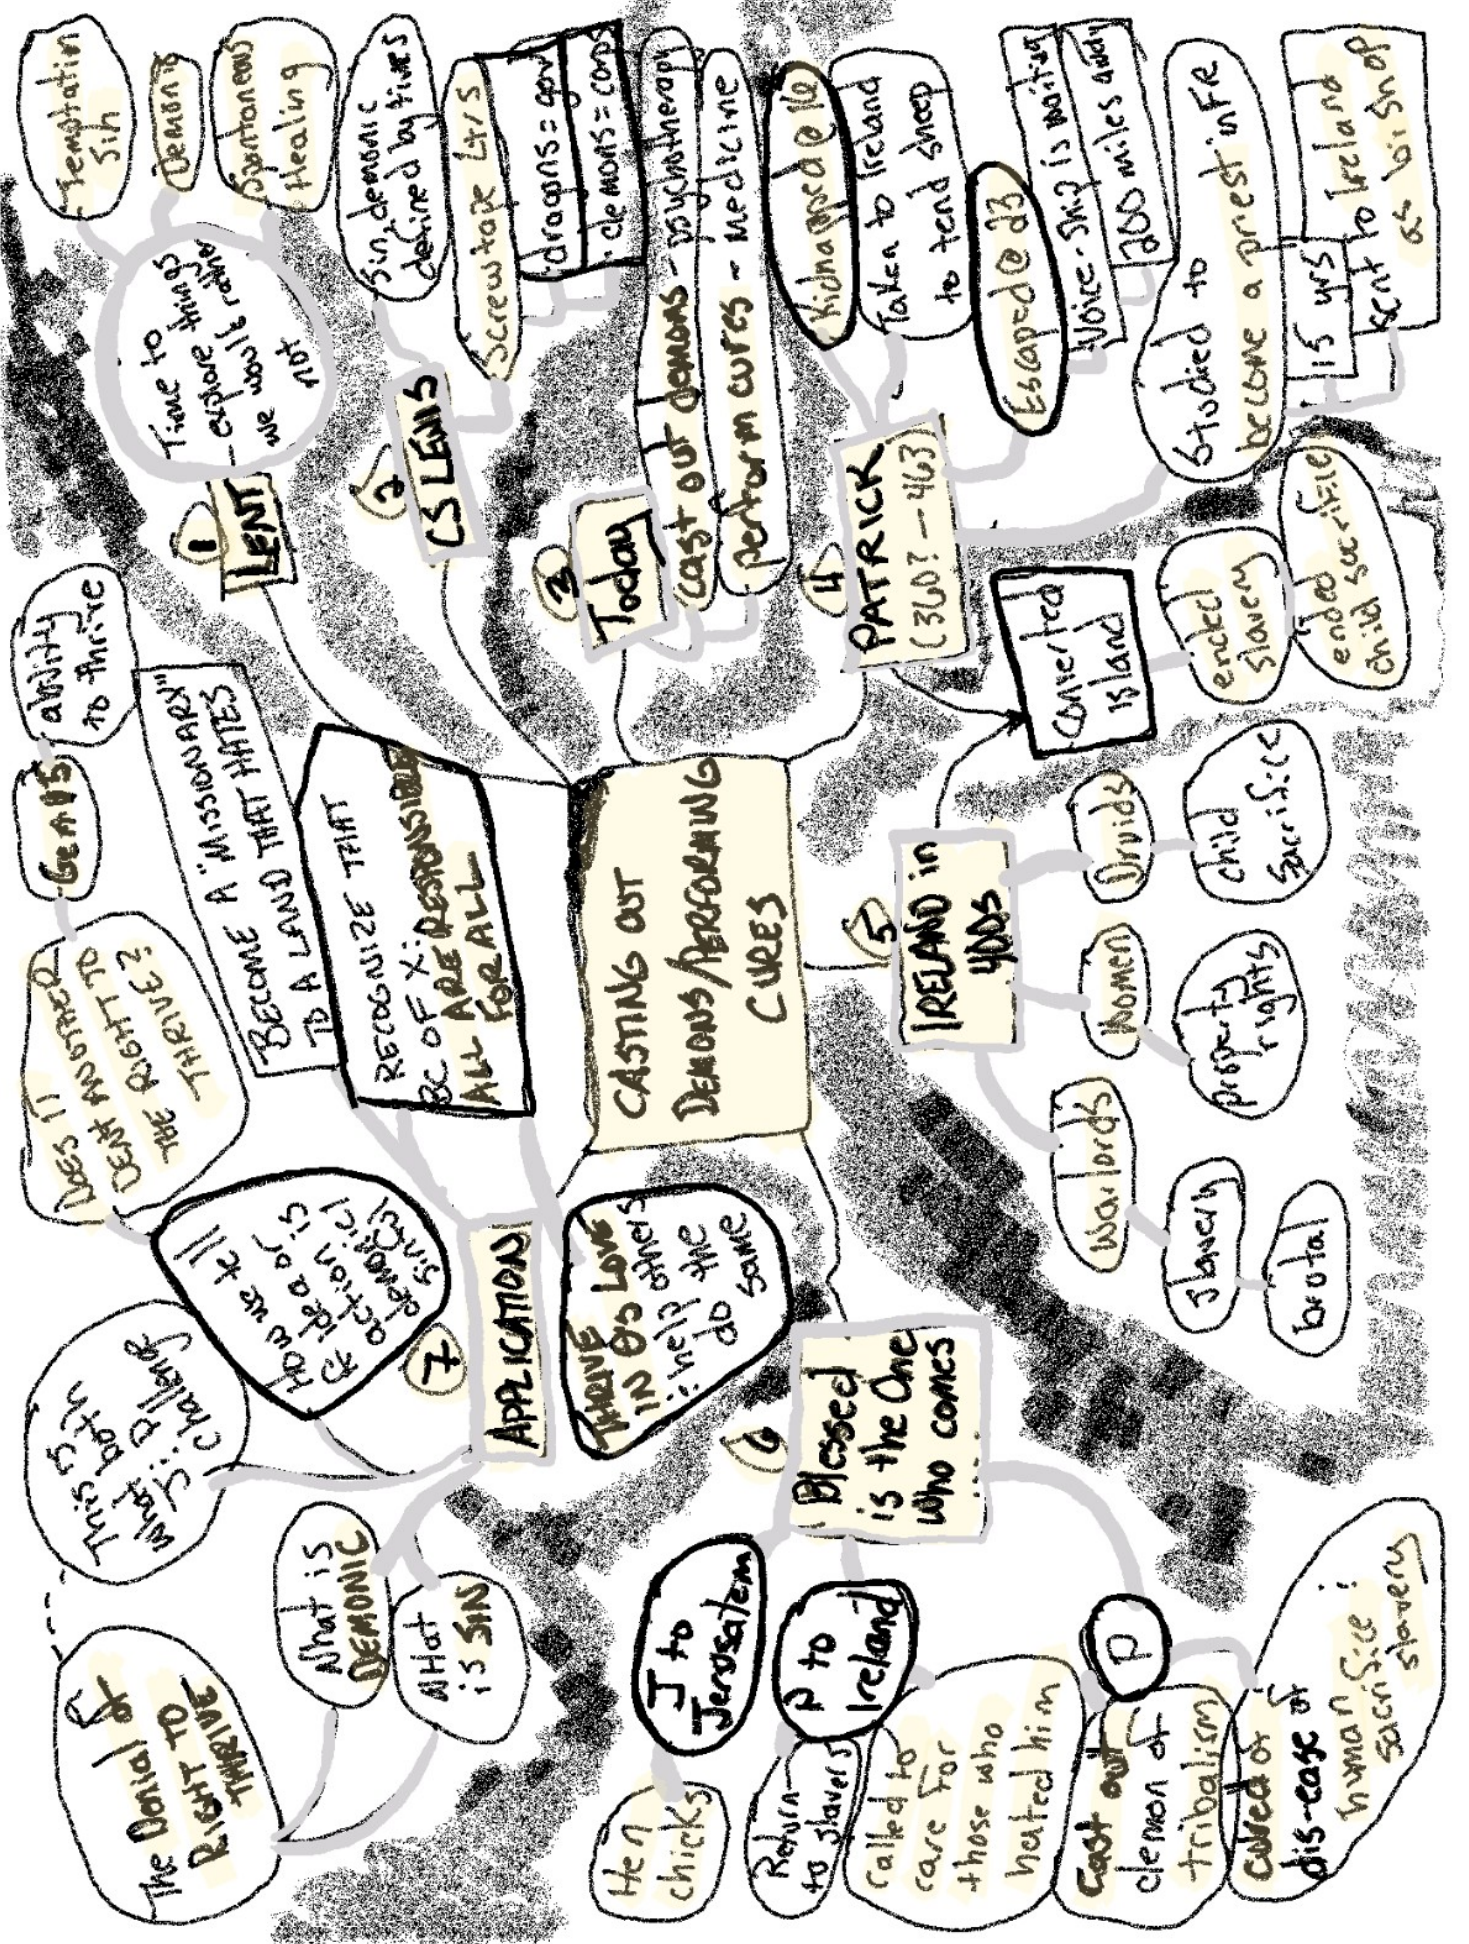 CASTING OUT
DEMONS/PERFORMING
CURES
1
LENT
Time to
explore things
we would rather
not
Temptatin
Sin
Demonic
Spontaneous
Healing
2
CS LEWIS
Sin, demonic
defined by times
Screwtape Ltrs
dragons = gov
demons = corps
3
Today
cast out demons - psychotherapy
perform cures - medicine
4
PATRICK
(360? - 463)
Kidnapped @ 16
Taken to Ireland
to tend sheep
Escaped @ 23
Voice - Ship is waiting
200 miles away
Studied to
become a priest in FR
15 yrs
sent to Ireland
as bishop
Converted
island
ended
slavery
ended
child sacrifice
5
IRELAND in
400s
Druids
child
Sacrifice
Women
property
rights
Warlords
slavery
brutal
6
Blessed
is the One
who comes
...
J to
Jerusalem
Hen
chicks
P to
Ireland
Return
to slavers
called to
care for
those who
hated him
P
Cast out
demon of
tribalism
cured of
dis-ease of
human
sacrifice;
slavery
7
APPLICATION
What is
DEMONIC
What
is SIN
The Denial of
RIGHT TO
THRIVE
This is in
what but in
what is: challenge
How we tell
idea or
action is
demonic/
sinful
DOES IT
DENY ANOTHER
THE RIGHT TO
THRIVE?
ability
to thrive
BECOME A "MISSIONARY"
TO A LAND THAT HATES
RECOGNIZE THAT
BC OF X:
ALL ARE RESPONSIBLE
FOR ALL
THRIVE
IN G'S LOVE
: help others
do the
same